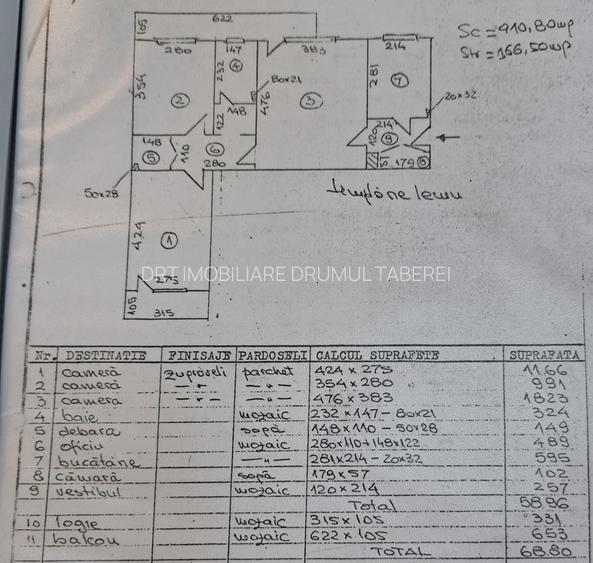 622
105
280
147
383
214
Sc = 410,80mp
Str = 166,50mp
354
232
4
80x21
281
7
20x32
2
476
3
148
122
214
120
9
148
110
5
6
280
51
179
8
50x28
tâmplărie lemn
424
1
DRT IMOBILIARE DRUMUL TABEREI
275
105
315
Nr. DESTINATIE FINISAJE PARDOSELI CALCUL SUPRAFETE SUPRAFATA
1 cameră zugrăveli parchet 424 x 275 11.66
2 cameră — " — — " — 354 x 280 991
3 camera — " — — " — 476 x 383 1823
4 baie mozaic 232 x 147 - 80x21 324
5 debara șapă 148 x 110 - 50x28 149
6 oficiu mozaic 280x110+148x122 489
7 bucătărie — " — 281x214 - 20x32 595
8 cămară șapă 179 x 57 102
9 vestibul mozaic 120 x 214 257
Total 58.96
10 logie mozaic 315 x 105 331
11 balcon mozaic 622 x 105 653
TOTAL 68.80